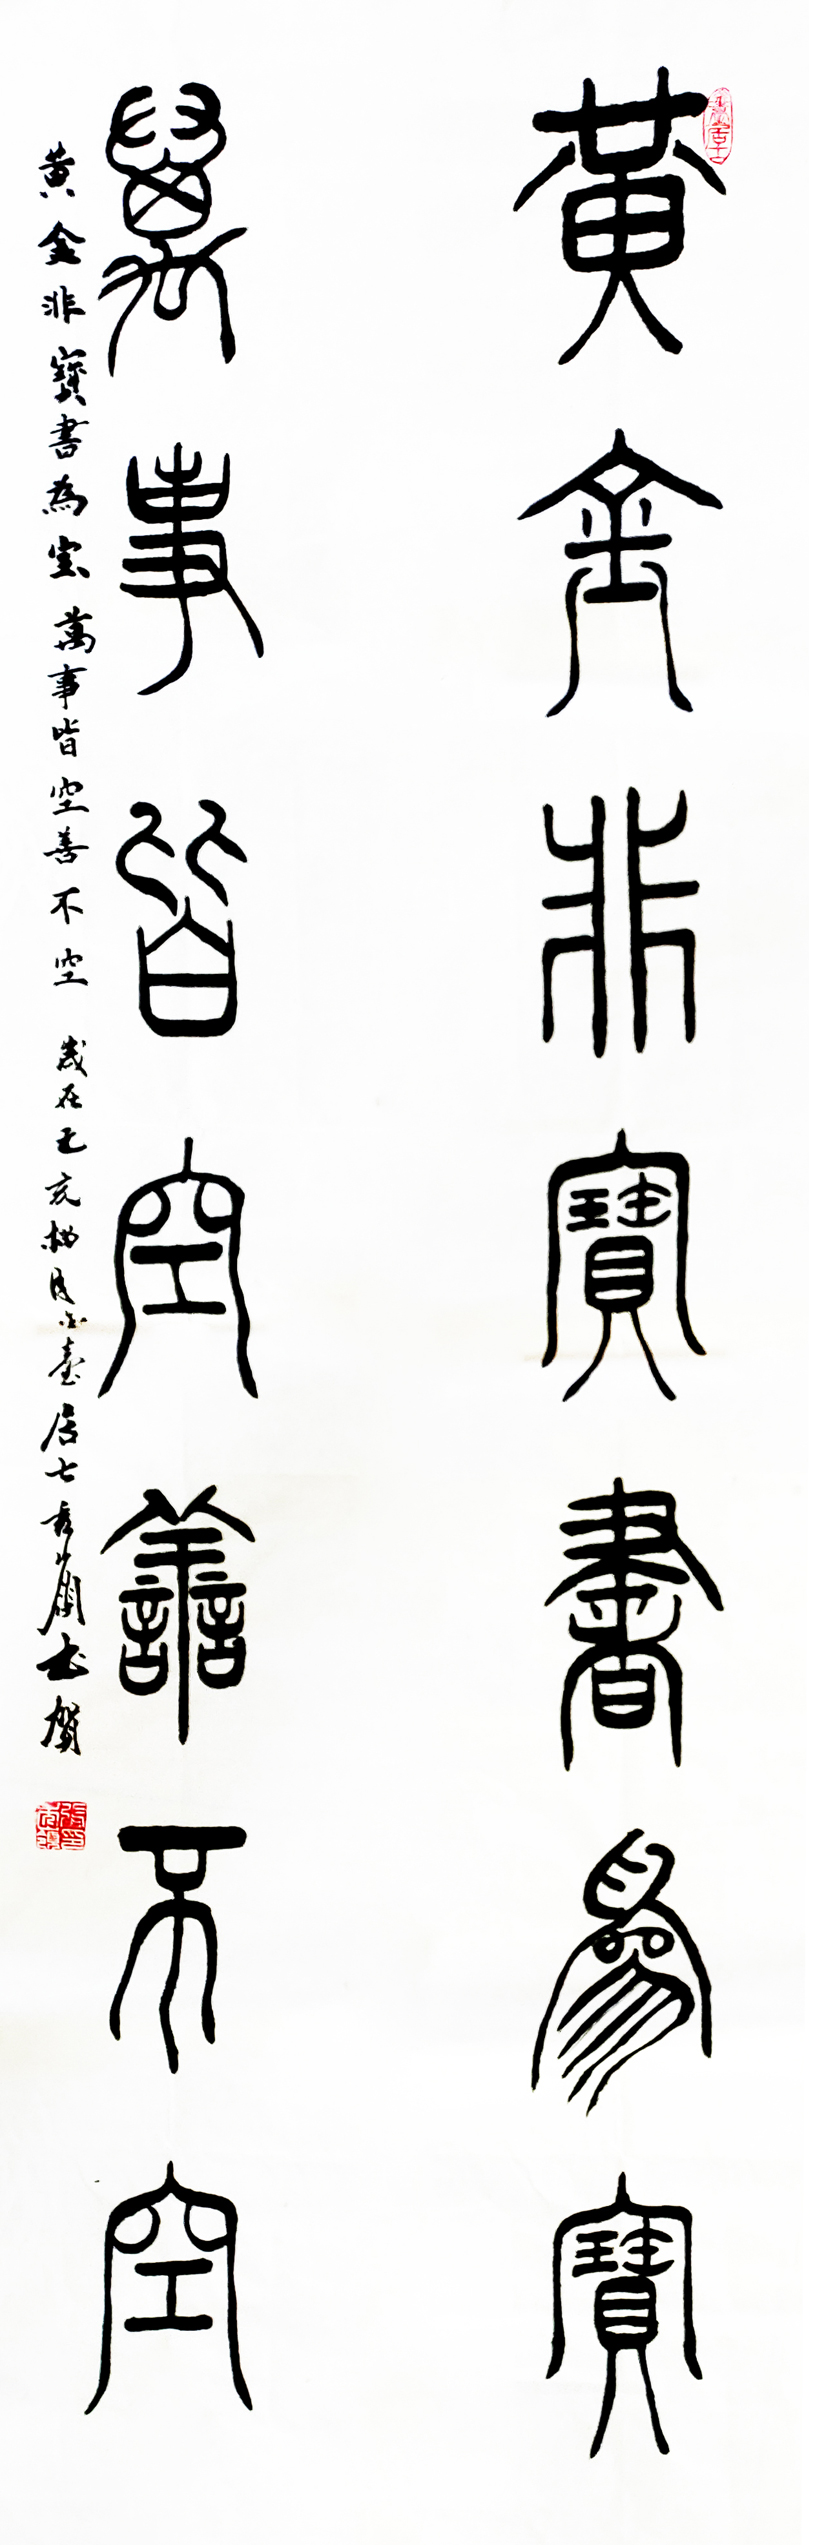 黃金非寶書為寶
萬事皆空善不空
黄金非寶書為宝 萬事皆空善不空 歲在